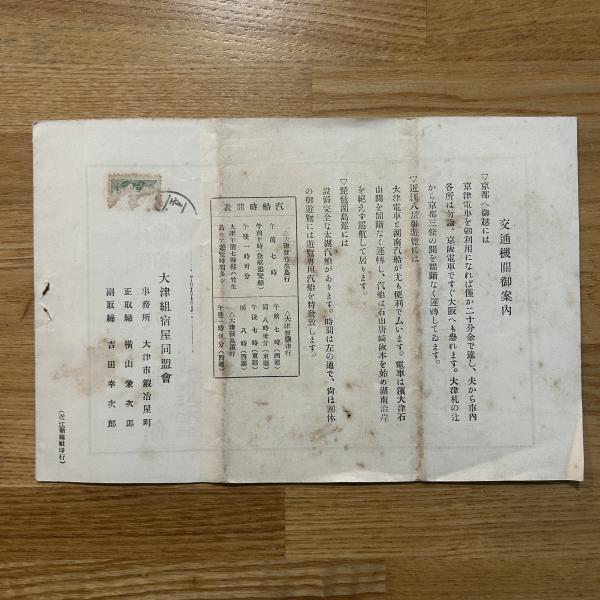 交通機關御案內
▽京都へ御越には
京津電車を御利用になれば僅か二十分余で達し、夫から市內
各所は勿論、京阪電車ですぐ大阪へも參れます。大津札の辻
から京都三條の間を間斷なく運轉してゐます。
▽近江八景御遊覽には
大津電車と湖南汽船が尤も便利で厶います。電車は濱大津石
山間を間斷なく運轉し、汽船は石山唐崎坂本を始め湖南沿岸
を絕えず巡航して居ります。
▽琵琶湖島巡には
設備完全な太湖汽船があります。時間は左の通で、尙ほ團体
の御遊覽には遊覽專用汽船を特發致します。
汽船時間表
△大津發竹生島行
午前七時
午前十時
午後一時卅分
大津午前七時發ハ竹生
△大津發鹽津行
午前七時（西廻）
同八時卅分（東廻）
午後七時（東廻）
同八時（西廻）
午後一時卅分（西廻）
大津組宿屋同盟會
事務所 大津市鍛冶屋町
正取締 橫山兼次郎
副取締 吉田幸次郎
（近江新報社印行）